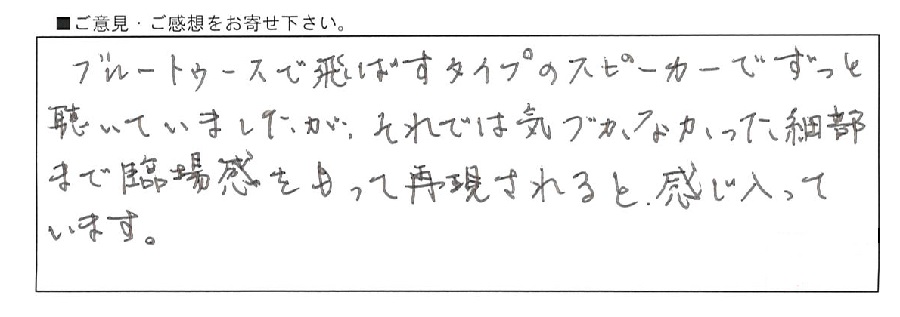 ■ご意見・ご感想をお寄せ下さい。
ブルートゥースで飛ばすタイプのスピーカーでずっと
聴いていましたが、それでは気づかなかった細部
まで臨場感をもって再現されると、感じ入って
います。